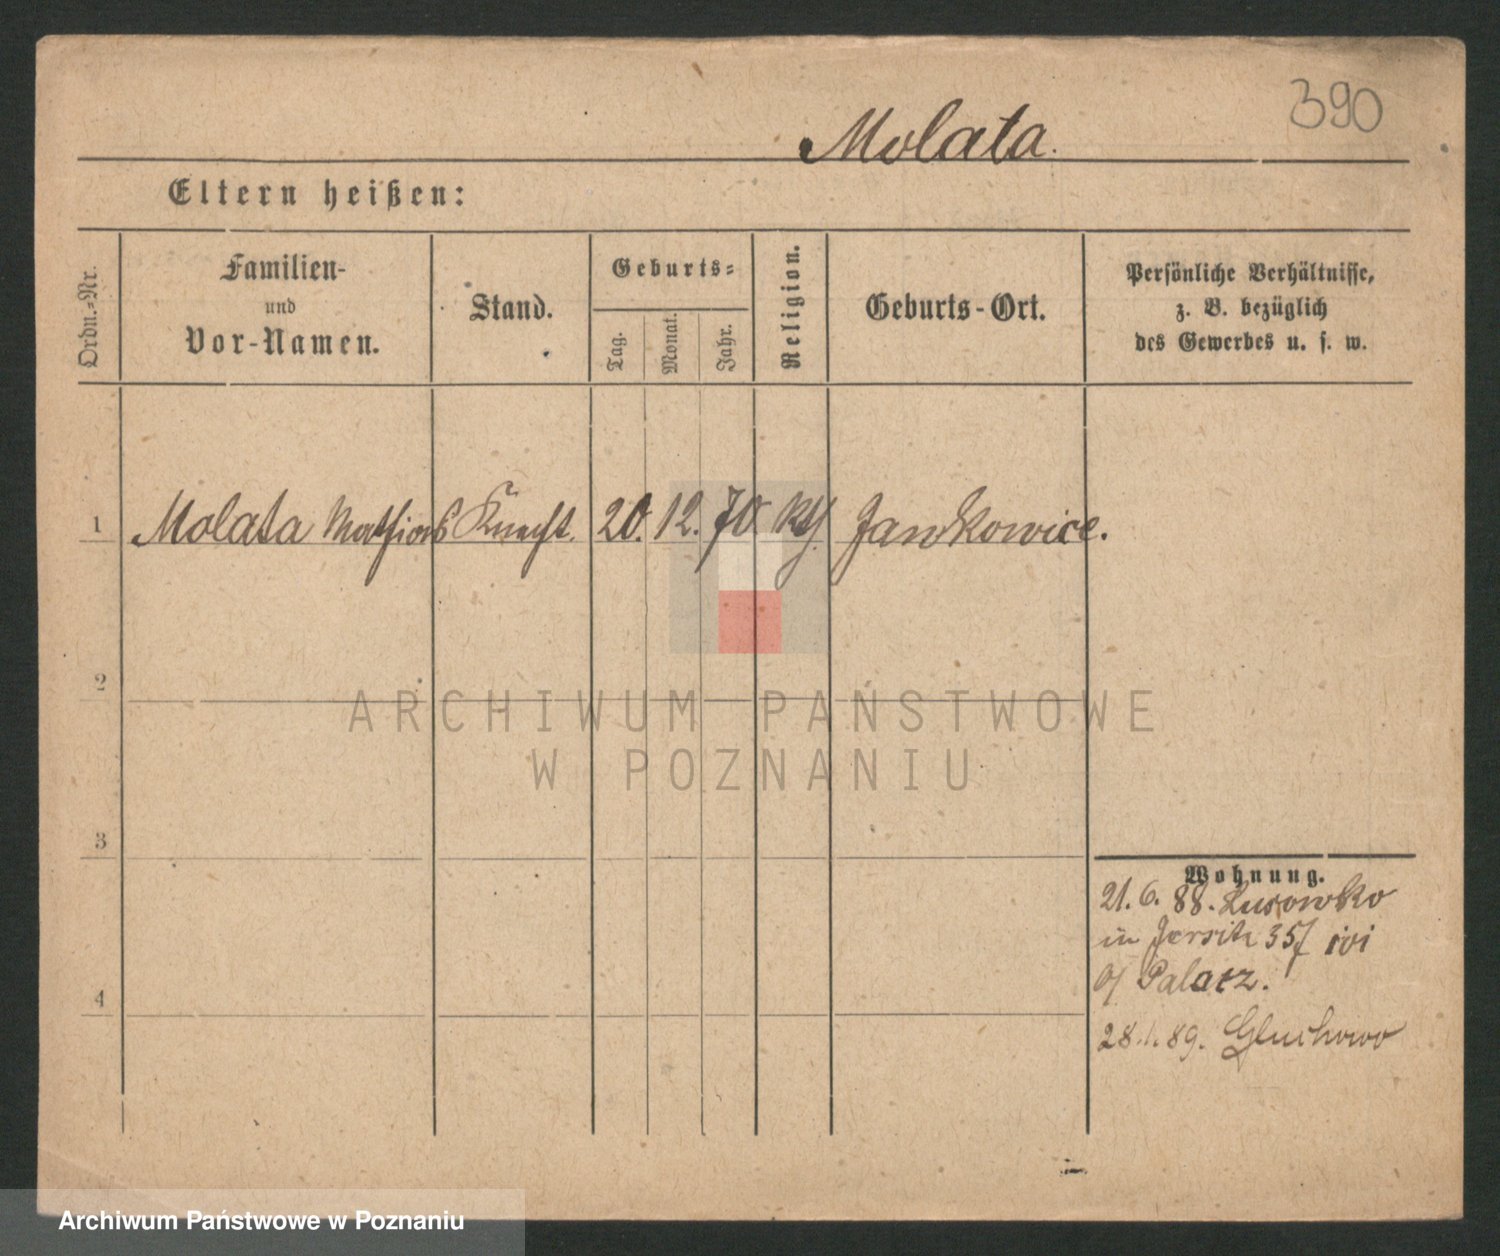 390
Molata.
Eltern heißen:
Ordn.-Nr.
Familien-
und
Vor-Namen.
Stand.
Geburts-
Tag.
Monat.
Jahr.
Religion.
Geburts-Ort.
Persönliche Verhältnisse,
z. B. bezüglich
des Gewerbes u. s. w.
1 Molata Mathias Knecht. 20. 12. 70 Jankowice.
2
ARCHIWUM PAŃSTWOWE
W POZNANIU
3
Wohnung.
21. 6. 88. Lusowko
in Jersitz 357 bei
Palacz.
4
28.1.89. Gluchowo
Archiwum Państwowe w Poznaniu